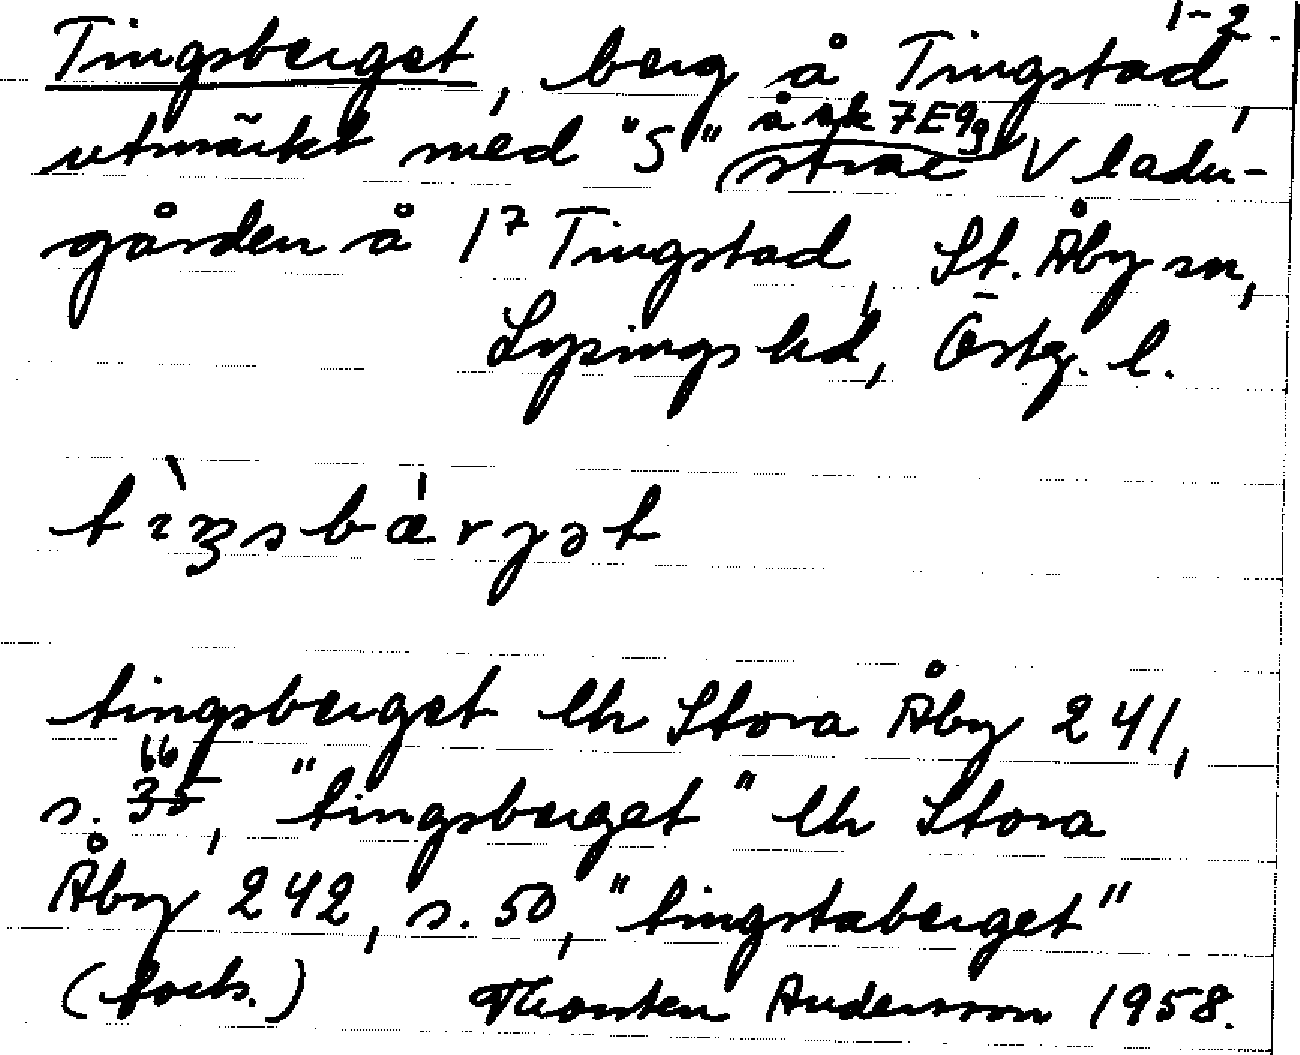 1-2.
Tingsberget, berg å Tingstad,
utmärkt med "S" å sk 7E9g (strax V ladu-
gården å 1⁷ Tingstad, St. Åby sn,
Lysings hd, Östg. l.
tingsberget lh Stora Åby 241,
s. 66, "tingsberget" lh Stora
Åby 242, s. 50, "tingstaberget"
(forts.) Thorsten Andersson 1958.